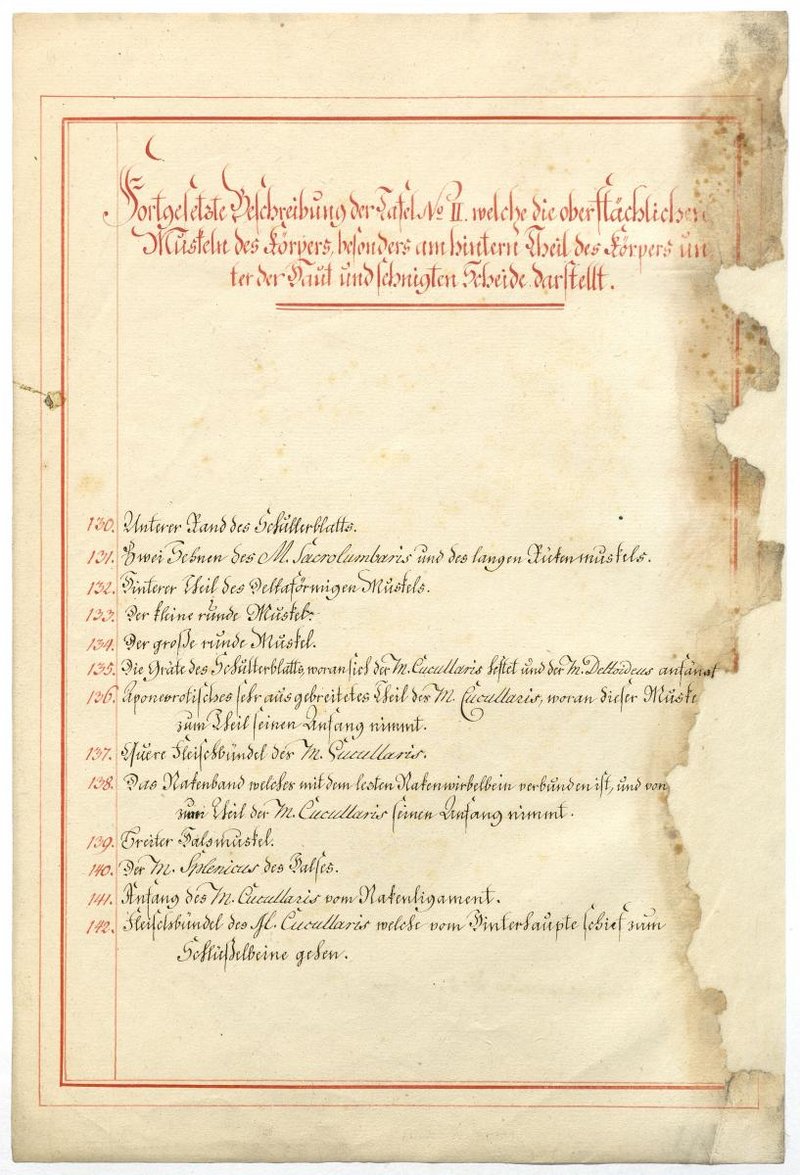 Fortgesetzte Beschreibung der Tafel No II. welche die oberflächlichen
Muskeln des Körpers, besonders am hintern Theil des Körpers un
ter der Haut und sehnigten Scheide darstellt.
130. Unterer Rand des Schulterblatts.
131. Zwei Sehnen des M. Sacrolumbaris und des langen Rückenmuskels.
132. Hinterer Theil des Deltaförmigen Muskels.
133. Der kleine runde Muskel.
134. Der große runde Muskel.
135. Die Gräte des Schulterblatts, woran sich der M. Cucullaris heftet und der M. Deltoideus anfängt
136. Aponevrotisches sehr ausgebreitetes Theil des M. Cucullaris, woran dieser Muske
zum Theil seinen Anfang nimmt.
137. Quere Fleischbündel des M. Cucullaris.
138. Das Nakenband welches mit dem lesten Nakenwirbelbein verbunden ist, und von
zum Theil der M. Cucullaris seinen Anfang nimmt.
139. Breiter Halsmuskel.
140. Der M. Splenicus des Halses.
141. Anfang des M. Cucullaris vom Nakenligament.
142. Fleischbündel des M. Cucullaris welche vom Hinterhaupte schief zum
Schlüßelbeine gehen.